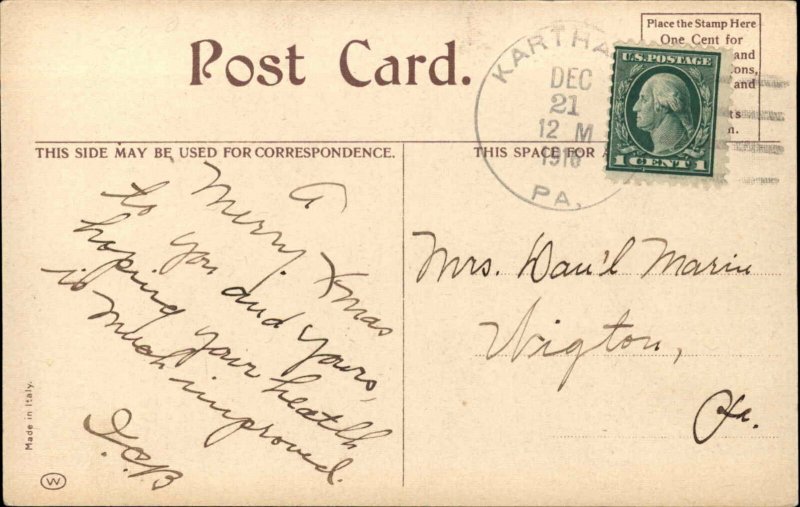 Post Card.
Place the Stamp Here
One Cent for
and
ons,
and
ts
n.
KARTHA
DEC
21
12 M
1916
PA.
U.S. POSTAGE
1 CENT 1
THIS SIDE MAY BE USED FOR CORRESPONDENCE.
THIS SPACE FOR
A
Merry Xmas
to you and yours,
hoping your health
is much improved.
Mrs. Dan'l Marin
Wigton,
Pa.
Made in Italy.
W